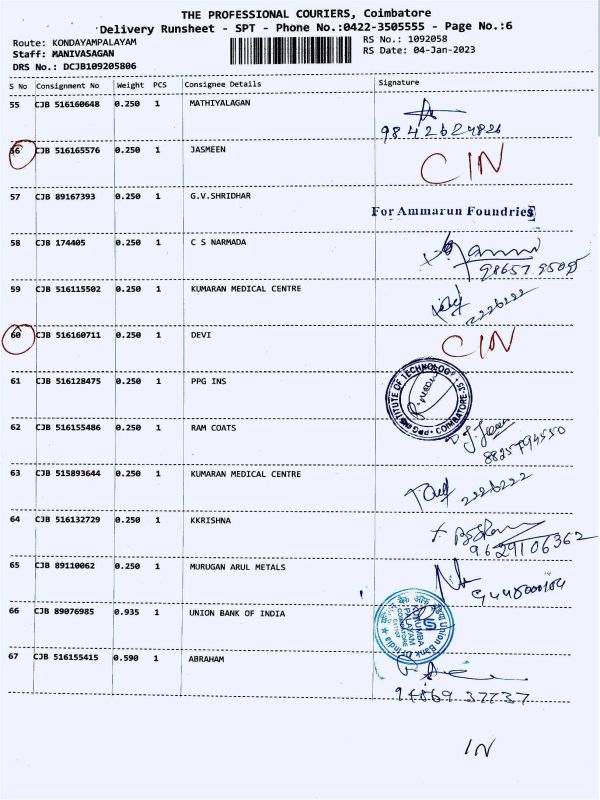 THE PROFESSIONAL COURIERS, Coimbatore
Delivery Runsheet - SPT - Phone No.:0422-3505555 - Page No.:6
Route: KONDAYAMPALAYAM
RS No.: 1092058
Staff: MANIVASAGAN
RS Date: 04-Jan-2023
DRS No.: DCJB109205806
S No Consignment No Weight PCS Consignee Details Signature
55 CJB 516160648 0.250 1 MATHIYALAGAN
9842624826
56 CJB 516165576 0.250 1 JASMEEN CIN
57 CJB 89167393 0.250 1 G.V.SHRIDHAR
For Ammarun Foundries
58 CJB 174405 0.250 1 C S NARMADA
59 CJB 516115502 0.250 1 KUMARAN MEDICAL CENTRE
2226222
60 CJB 516160711 0.250 1 DEVI CIN
61 CJB 516128475 0.250 1 PPG INS
INSTITUTE OF TECHNOLOGY
COIMBATORE-35
PPG
62 CJB 516155486 0.250 1 RAM COATS
8825794550
63 CJB 515893644 0.250 1 KUMARAN MEDICAL CENTRE
2226222
64 CJB 516132729 0.250 1 KKRISHNA
9629106362
65 CJB 89110062 0.250 1 MURUGAN ARUL METALS
66 CJB 89076985 0.935 1 UNION BANK OF INDIA
Union Bank of India
KURUMBA
PALAYAM
COIMBATORE
67 CJB 516155415 0.590 1 ABRAHAM
94869 37737
IN